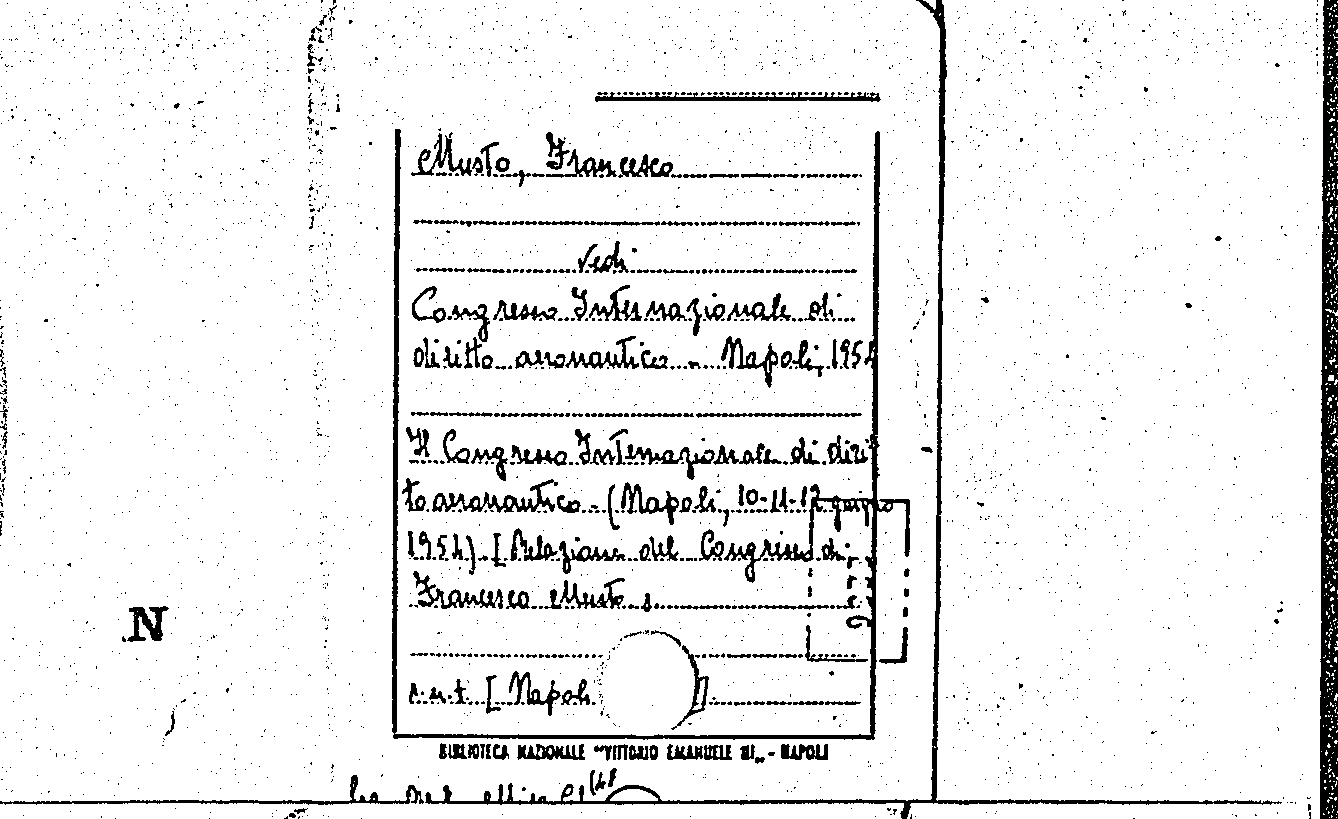 Musto, Francesco
Vedi
Congresso Internazionale di
diritto aeronautico - Napoli, 1954
Il Congresso Internazionale di dirit
to aeronautico - (Napoli, 10-11-12 giugno
1954) [Relazione del Congresso di
Francesco Musto
s.n.t. [Napoli ]
N
BIBLIOTECA NAZIONALE "VITTORIO EMANUELE III„ - NAPOLI